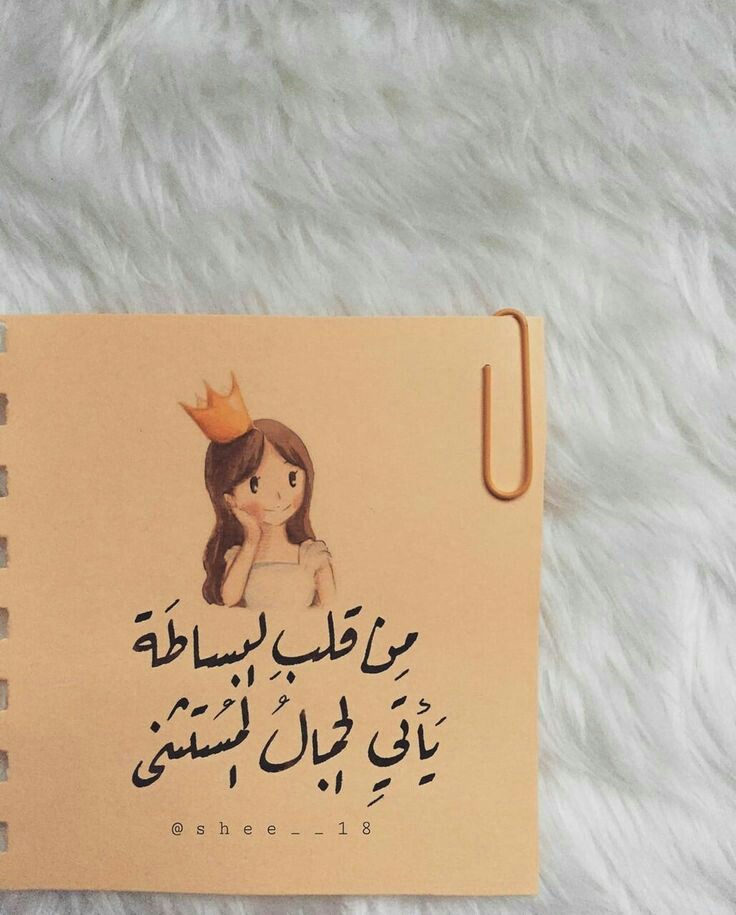 مِن قلبِ البساطَة
يَأتي الجمالُ المُستثنى
@shee__18